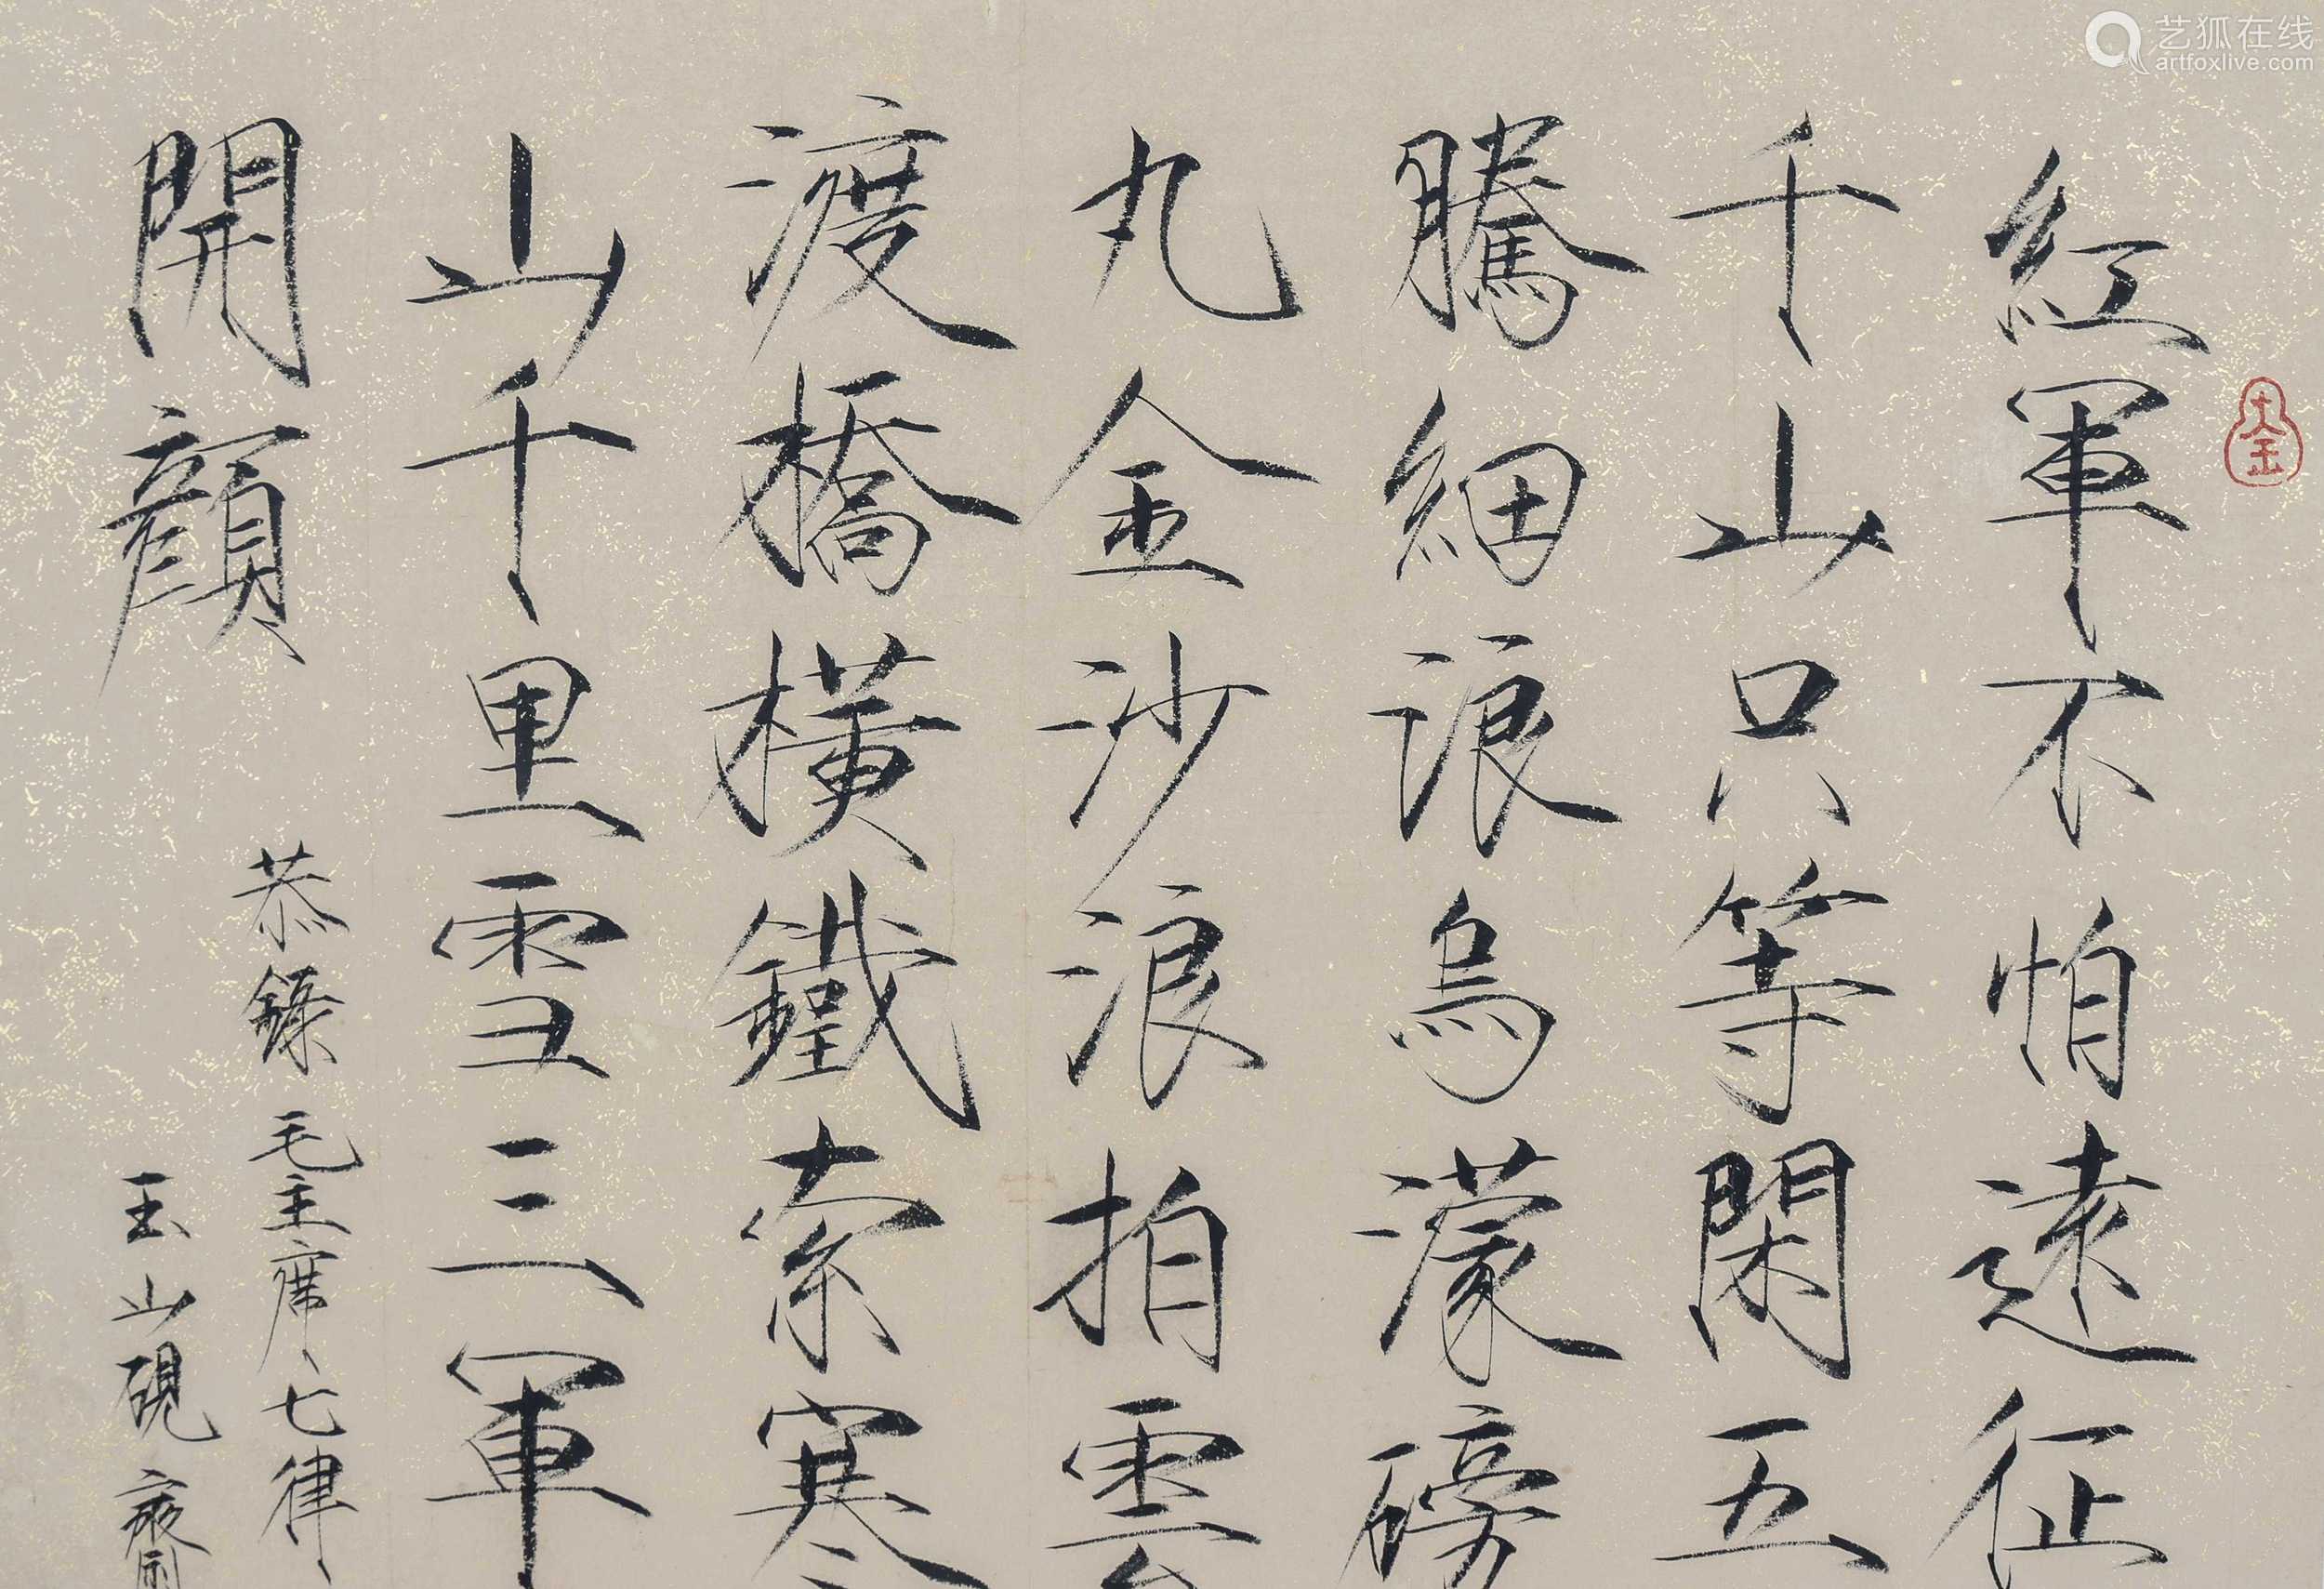 紅軍不怕遠征
千山只等閑五
騰細浪烏濛磅
丸金沙浪拍雲
渡橋橫鐵索寒
山千里雪三軍
開顏
恭錄毛主席七律
玉山硯齋
大金
艺狐在线
artfoxlive.com